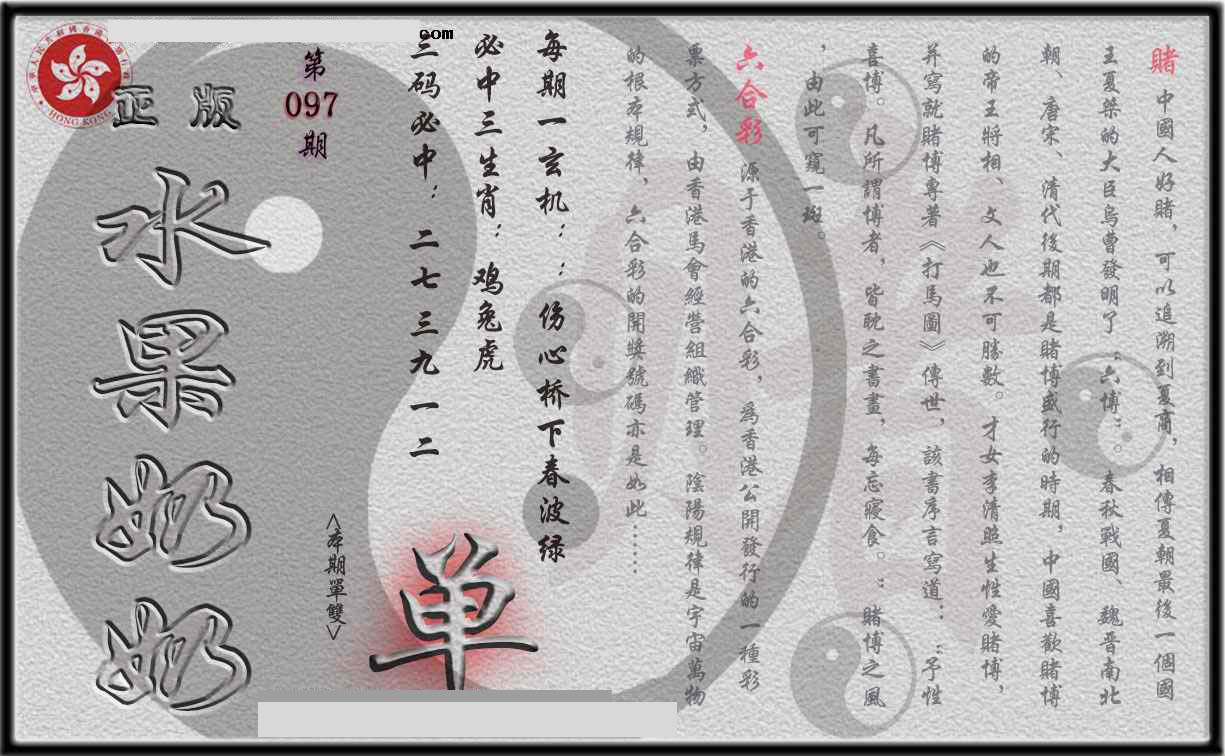 賭 中國人好賭，可以追溯到夏商，相傳夏朝最後一個國
王夏桀的大臣烏曹發明了“六博”。春秋戰國、魏晉南北
朝、唐宋、清代後期都是賭博盛行的時期，中國喜歡賭博
的帝王將相、文人也不可勝數。才女李清照生性愛賭博，
并寫就賭博專著《打馬圖》傳世，該書序言寫道：“予性
喜博。凡所謂博者，皆耽之書晝，每忘寢食。”賭博之風
，由此可窺一斑。
六合彩 源于香港的六合彩，為香港公開發行的一種彩
票方式，由香港馬會經營組織管理。陰陽規律是宇宙萬物
的根本規律，六合彩的開獎號碼亦是如此……
每期一玄机：：伤心桥下春波绿
必中三生肖：鸡兔虎
三码必中：二七 三九 一二
com
第
097
期
<本期單雙>
单
正版
水果奶奶
HONG KONG